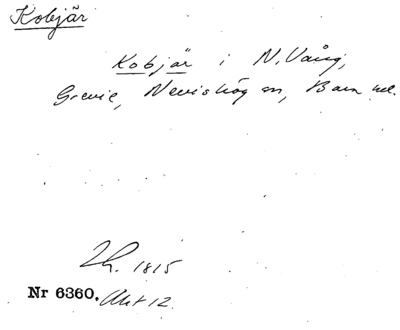 Kobjär
Kobjär i N. Vång,
Grevie, Nevishög sn, Bara hd.
Lh. 1815
Nr 6360. Akt 12.